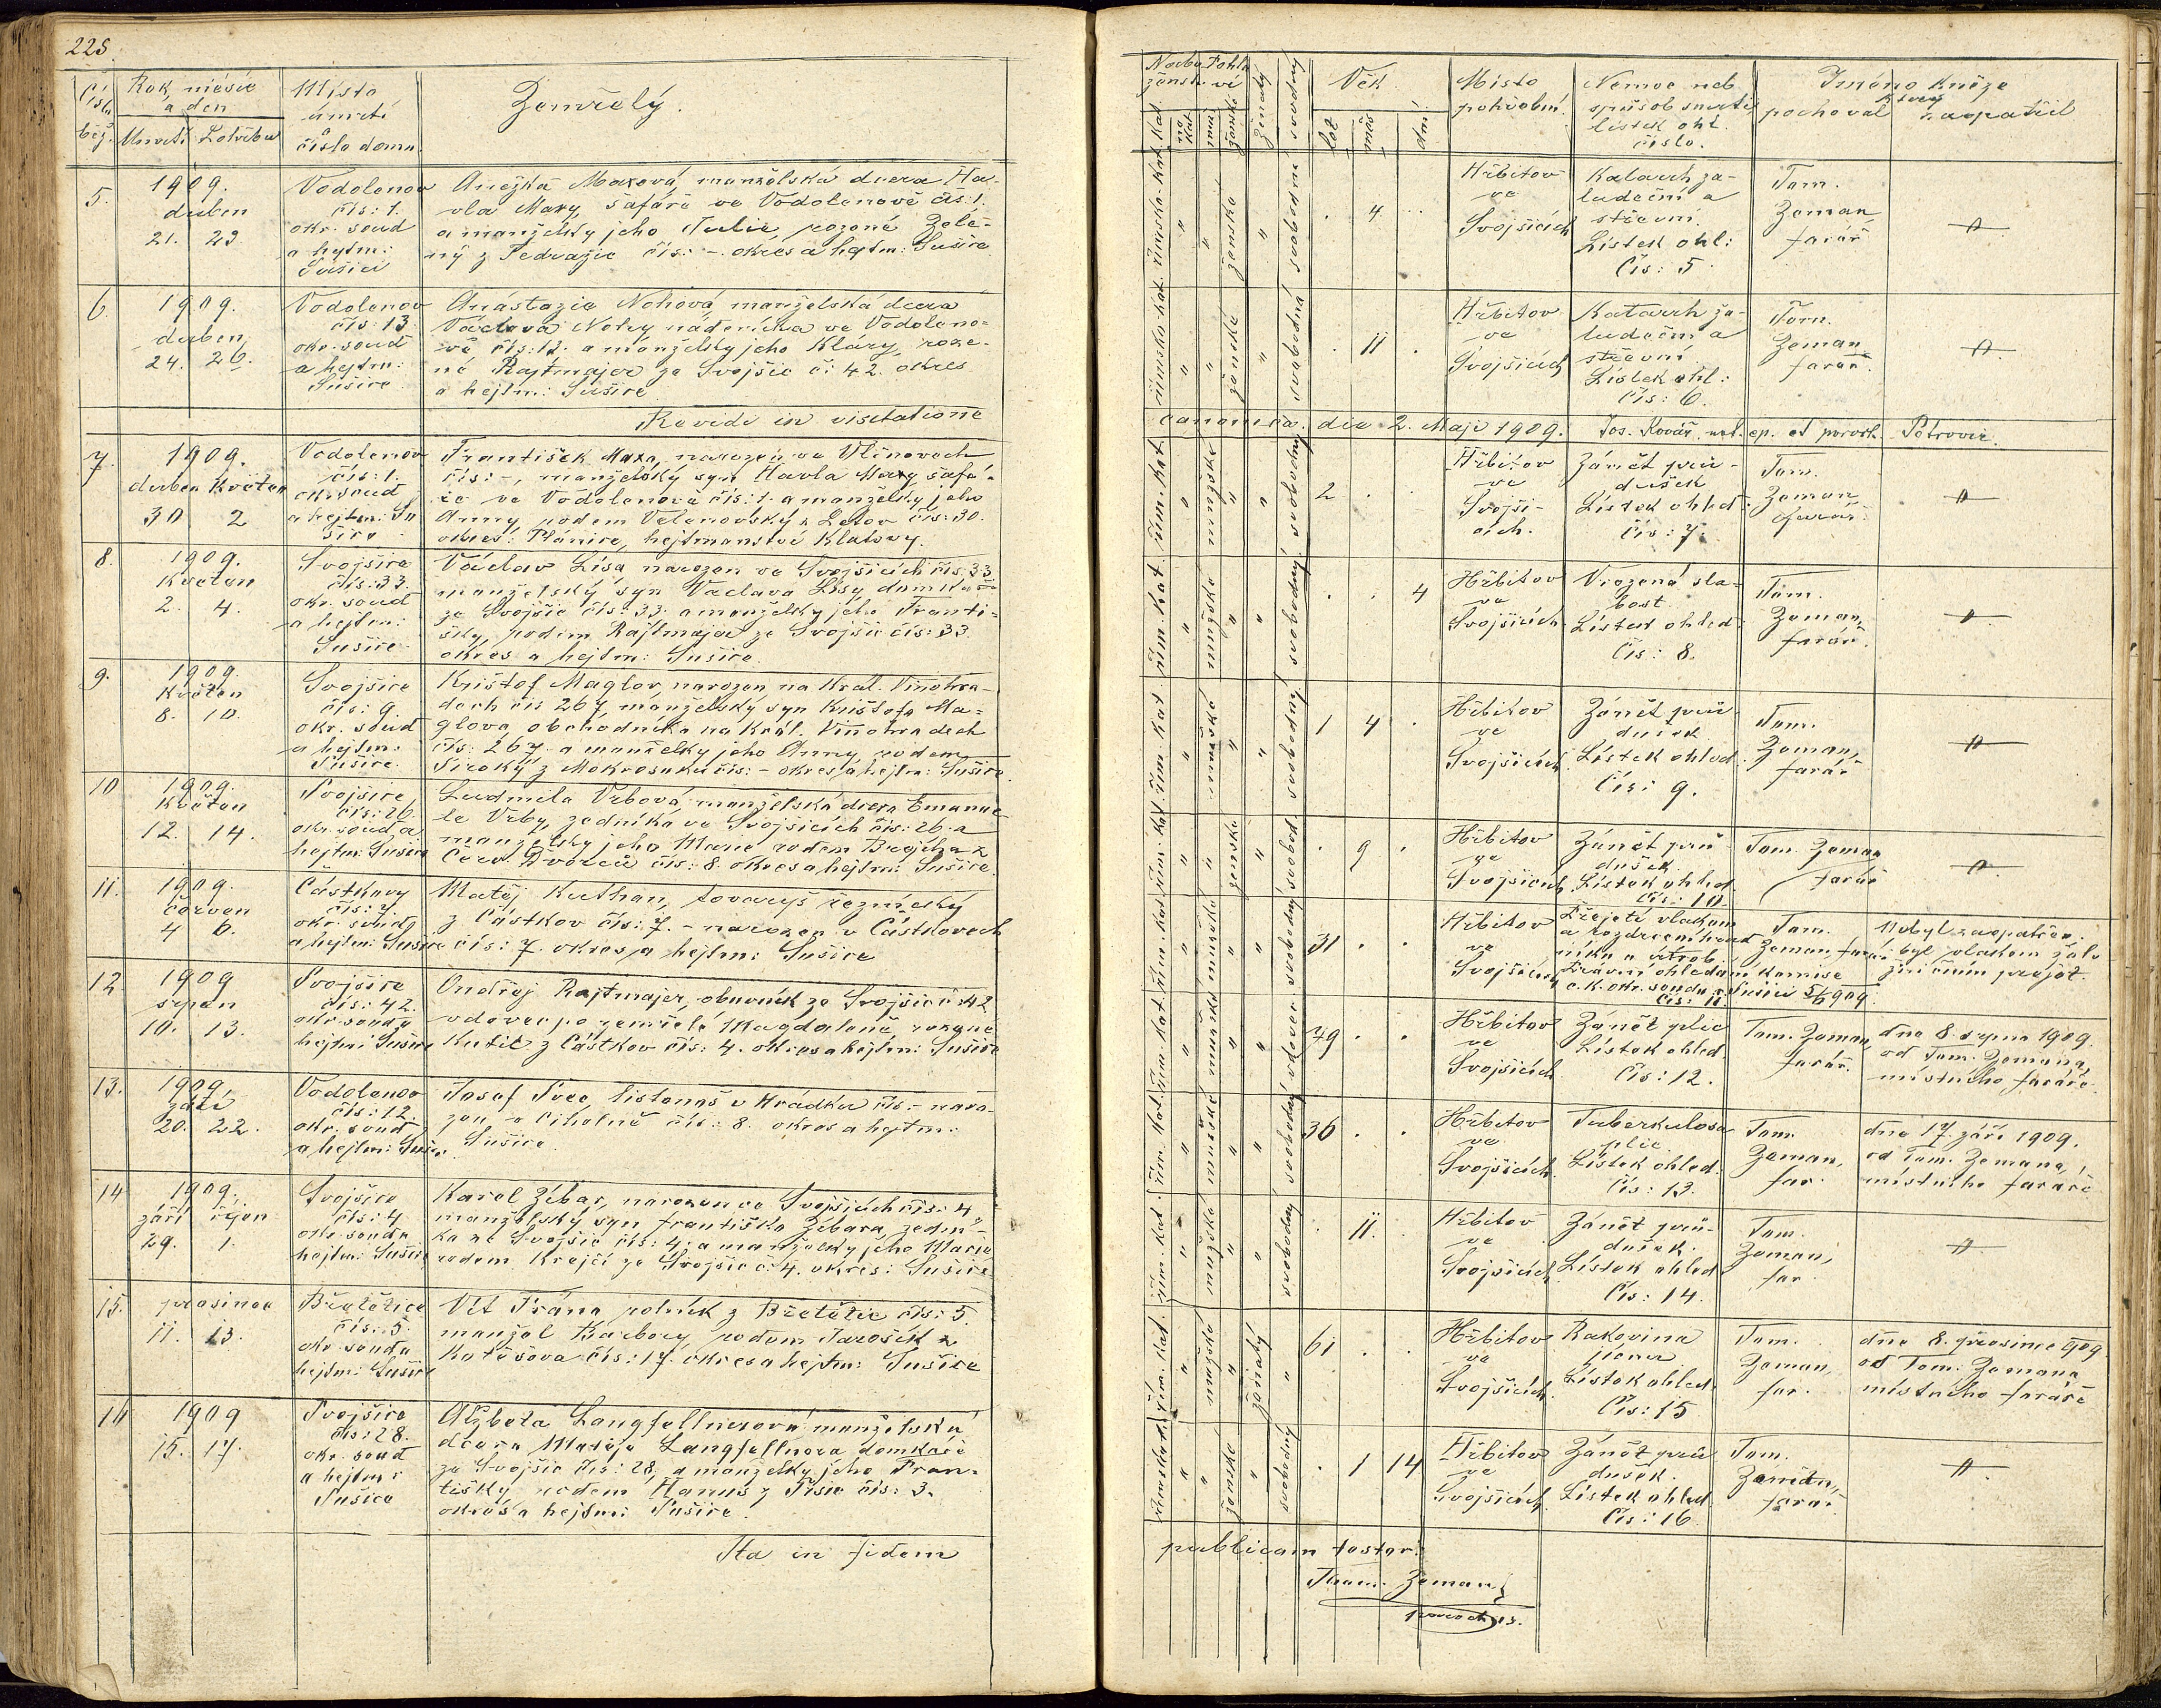 228.
Číslo běž.
Rok, měsíc
a den
Úmrtí Pohřbu
Místo
úmrtí
a
číslo domu.
Zemřelý.
5.
1909.
duben
21. 23.
Vodolenov
čís: 1.
okr. soud
a hejtm:
Sušici
Anežka Maxová, manželská dcera Ha-
vla Maxy, šafáře ve Vodolenově čís: 1.
a manželky jeho Julie, rozené Zele-
ný z Tedražic čís: -. okres a hejtm: Sušice
6.
1909.
duben
24. 26.
Vodolenov
čís: 13.
okr. soud
a hejtm:
Sušice
Anastazie Nohová, manželská dcera
Václava Nohy nádeníka ve Vodoleno=
vě čís: 12. a manželky jeho Kláry, roze-
né Rajtmajer ze Svojšic č: 42. okres
a hejtm: Sušice
Revidi in visitatione
7.
1909.
duben Květen
30 2
Vodolenov
čís: 1.
okr. soud
a hejtm: Su
šice
František Maxa, narozen ve
čís: -, manželský syn Havla Maxy, šafá-
ře ve Vodolenově čís: 1. a manželky jeho
Anny, rodem Velenovský z Letov čís: 30.
okres: Plánice, hejtmanství Klatovy.
8.
1909.
Květen
2. 4.
Svojšice
čís: 33.
okr. soud
a hejtm:
Sušice
Václav Lísa narozen ve Svojšicích čís: 33.
manželský syn Václava Lísy, domkáře
ze Svojšic čís: 33. a manželky jeho Franti-
šky, rodem Rajtmajer ze Svojšic čís: 33.
okres a hejtm: Sušice.
9.
1909.
Květen
8. 10.
Svojšice
čís: 9
okr. soud
a hejtm:
Sušice.
Krištof Maglov, narozen na Král. Vinohra-
dech čís 267, manželský syn Krištofa Ma=
glova, obchodníka na Král. Vinohradech
čís: 267. a manželky jeho Anny, rodem
Široký z Mokrosuku čís: - okres a hejtm: Sušice.
10
1909.
Květen
12. 14.
Svojšice
čís: 26.
okr. soud a
hejtm: Sušice
Ludmila Vrbová, manželská dcera Emanue
le Vrby, zedníka ve Svojšicích čís: 26. a
manželky jeho Marie rodem Brejcha z
Červ. Dvorců čís: 8. okres a hejtm: Sušice.
11.
1909.
červen
4 6.
Částkovy
čís: 7
okr. soud
a hejtm: Sušice
Matěj Kuthan, tovaryš řeznický
z Částkov čís: 7. - narozen v Částkovech
čís: 7. okres a hejtm: Sušice
12
1909
srpen
10. 13.
Svojšice
čís: 42.
okr. soud a
hejtm: Sušice
Ondřej Rajtmajer, obuvník ze Svojšic č: 42
vdovec po zemřelé Magdaleně, rozené
Kutil z Částkov čís: 4. okres a hejtm: Sušice
13.
1909.
září
20. 22.
Vodolenov
čís: 12.
okr. soud
a hejtm: Sušice.
Josef Švec, listonoš v Hrádku čís: - naro-
zen v Cihelně čís: 8. okres a hejtm:
Sušice.
14
1909.
září říjen
29. 1.
Svojšice
čís: 4.
okr. soud a
hejtm: Sušice
Karel Žíbar, narozen ve Svojšicích čís: 4,
manželský syn Františka Žíbara, zední-
ka ze Svojšic čís: 4. a manželky jeho Marie
rodem Krejčí ze Svojšic č: 4. okres: Sušice
15.
prosinec
11. 13.
Břetětice
čís: 5.
okr. soud a
hejtm: Sušice
Vít Frána rolník z Břetětic čís: 5.
manžel Barbory rodem Jarošík z
Kotěšova čís: 17. okres a hejtm: Sušice
16
1909
15. 17.
Svojšice
čís: 28.
okr. soud
a hejtm:
Sušice
Alžběta Langfellnerová manželská
dcera Matěje Langfellnera domkáře
ze Svojšic čís: 28. a manželky jeho Fran=
tišky rodem Hanuš z čís: 3.
okres a hejtm: Sušice.
Ita in fidem
Nábo
ženství
Pohla
ví
Kat.
ne
Kat
muž
žensk
ženatý
svobodný
Věk
let
měs
dní
Místo
pohřební.
Nemoc neb
způsob smrti
lístek ohl.
číslo.
Jméno kněze
který
pochoval zaopatřil
římsko-kat. " " ženské " svobodná
. 4. .
Hřbitov
ve
Svojšicích
Katarrh ža-
ludeční a
střevní
Lístek ohl:
Čís: 5
Tom.
Zeman
farář
římsko kat. " " ženské " svobodná
. 11 .
Hřbitov
ve
Svojšicích
Katarrh ža-
ludeční a
střevní
Lístek ohl:
čís: 6.
Tom.
Zeman
farář.
canonica. die 2. Maji 1909. Jos. Kovář, not. ep. et paroch. Petrovic.
řím. kat. " mužské " " svobodný
2 . .
Hřbitov
ve
Svojši-
cích.
Zánět prů-
dušek
Lístek ohled.
čís: 7.
Tom.
Zeman
farář.
řím. kat. " mužské " " svobodný
. . 4
Hřbitov
ve
Svojšicích
Vrozená sla-
bost.
Lístek ohled.
čís: 8.
Tom.
Zeman,
farář.
řím. kat " mužské " " svobodný
1 4 .
Hřbitov
ve
Svojšicích
Zánět prů-
dušek
Lístek ohled.
Čís: 9.
Tom.
Zeman,
farář
řím. kat " " ženské " svobod.
. 9 .
Hřbitov
ve
Svojšicích
Zánět prů
dušek
Lístek ohled.
čís: 10.
Tom. Zeman
farář
řím. kat " mužské " " svobodný
31 . .
Hřbitov
ve
Svojšicích
Přejetí vlakem
a rozdrcení hrud
níku a útrob
Zprávní ohledání komise
c. k. okr. soudu v Sušici 5/6 909.
čís: 11.
Tom.
Zeman, farář
Nebyl zaopatřen,
byl vlakem žele
zničním přejet.
řím. kat. " mužské " " vdovec
79 . .
Hřbitov
ve
Svojšicích
Zánět plic
Lístek ohled.
Čís: 12.
Tom. Zeman,
farář.
dne 8. srpna 1909.
od Tom. Zemana,
místního faráře.
řím. kat. " mužské " " svobodný
36 . .
Hřbitov
ve
Svojšicích.
Tuberkulosa
plic.
Lístek ohled.
čís: 13.
Tom.
Zeman,
far.
dne 17 září 1909.
od Tom. Zemana,
místního faráře
řím. kat. " mužské " " svobodný
. 11. .
Hřbitov
ve
Svojšicích
Zánět prů-
dušek.
Lístek ohled.
čís: 14.
Tom.
Zeman,
far.
řím. kat. " mužské " ženatý "
61 . .
Hřbitov
ve
Svojšicích.
Rakovina
jícnu
Lístek ohled.
Čís: 15
Tom.
Zeman,
far.
dne 8. prosince 909
od Tom. Zemana
místního faráře
římsko kat. " " ženské " svobodný
. 1 14
Hřbitov
ve
Svojšicích
Zánět prů
dušek.
Lístek ohled.
čís: 16.
Tom.
Zeman,
farář
publicam testor:
Thom. Zeman
parochus.